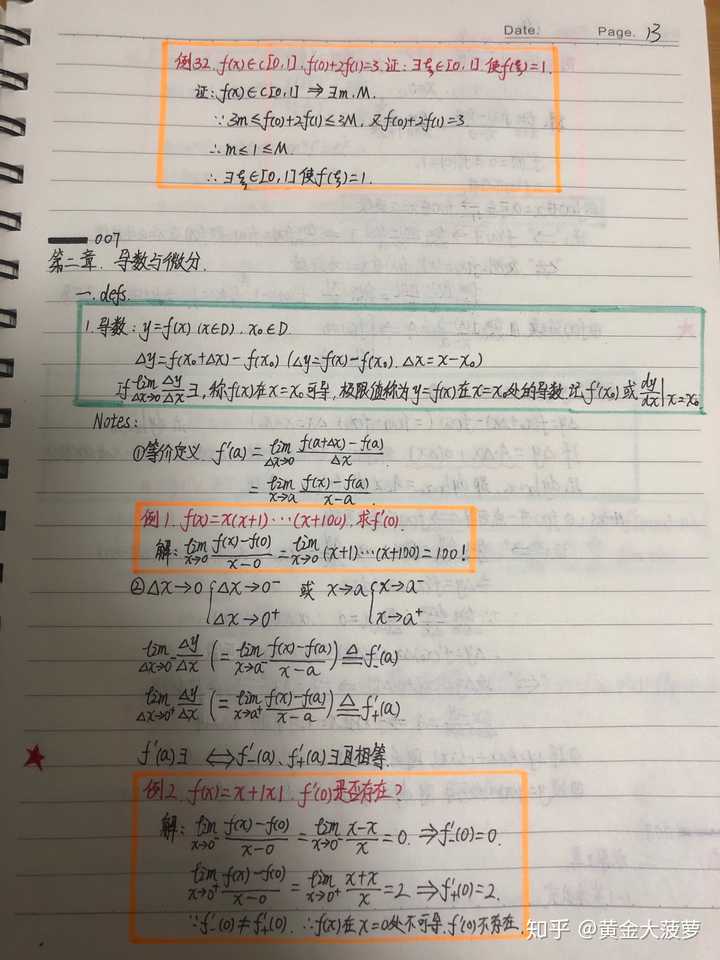 Date:
Page. 13
例32. f(x)∈C[0,1], f(0)+2f(1)=3. 证: ∃ξ∈[0,1], 使f(ξ)=1.
证: f(x)∈C[0,1] ⇒ ∃m, M.
∵ 3m≤f(0)+2f(1)≤3M, 又f(0)+2f(1)=3
∴ m≤1≤M.
∴ ∃ξ∈[0,1]使f(ξ)=1.
007
第二章. 导数与微分.
一. defs.
1. 导数: y=f(x) (x∈D). x₀∈D.
Δy=f(x₀+Δx)-f(x₀) (Δy=f(x)-f(x₀). Δx=x-x₀)
If lim_{Δx→0} Δy/Δx ∃, 称f(x)在x=x₀可导, 极限值称为y=f(x)在x=x₀处的导数. 记f'(x₀)或dy/dx|x=x₀
Notes:
①等价定义. f'(a)=lim_{Δx→0} (f(a+Δx)-f(a))/Δx
=lim_{x→a} (f(x)-f(a))/(x-a).
例1. f(x)=x(x+1)⋯(x+100). 求f'(0).
解: lim_{x→0} (f(x)-f(0))/(x-0)=lim_{x→0} (x+1)⋯(x+100)=100!
②Δx→0 { Δx→0⁻ 或 x→a { x→a⁻
Δx→0⁺ x→a⁺
lim_{Δx→0⁻} Δy/Δx (=lim_{x→a⁻} (f(x)-f(a))/(x-a)) ≜ f'₋(a)
lim_{Δx→0⁺} Δy/Δx (=lim_{x→a⁺} (f(x)-f(a))/(x-a)) ≜ f'₊(a)
★ f'(a)∃ ⇔ f'₋(a)、f'₊(a)∃且相等.
例2. f(x)=x+|x|. f'(0)是否存在?
解: lim_{x→0⁻} (f(x)-f(0))/(x-0)=lim_{x→0⁻} (x-x)/x=0. ⇒f'₋(0)=0.
lim_{x→0⁺} (f(x)-f(0))/(x-0)=lim_{x→0⁺} (x+x)/x=2 ⇒f'₊(0)=2.
∵f'₋(0)≠f'₊(0). ∴f(x)在x=0处不可导. f'(0)不存在.
知乎 @黄金大菠萝